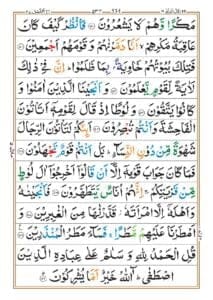 مَكْرًا وَّهُمْ لَا يَشْعُرُوْنَ ۝ فَانْظُرْ كَيْفَ كَانَ
عَاقِبَةُ مَكْرِهِمْ ۙ اَنَّا دَمَّرْنٰهُمْ وَقَوْمَهُمْ اَجْمَعِيْنَ ۝
فَتِلْكَ بُيُوْتُهُمْ خَاوِيَةًۢ بِمَا ظَلَمُوْا ؕ اِنَّ فِيْ ذٰلِكَ
لَاٰيَةً لِّقَوْمٍ يَّعْلَمُوْنَ ۝ وَاَنْجَيْنَا الَّذِيْنَ اٰمَنُوْا
وَكَانُوْا يَتَّقُوْنَ ۝ وَلُوْطًا اِذْ قَالَ لِقَوْمِهٖۤ اَتَاْتُوْنَ
الْفَاحِشَةَ وَاَنْتُمْ تُبْصِرُوْنَ ۝ اَئِنَّكُمْ لَتَاْتُوْنَ الرِّجَالَ
شَهْوَةً مِّنْ دُوْنِ النِّسَآءِ ؕ بَلْ اَنْتُمْ قَوْمٌ تَجْهَلُوْنَ ۝
فَمَا كَانَ جَوَابَ قَوْمِهٖۤ اِلَّاۤ اَنْ قَالُوْۤا اَخْرِجُوْۤا اٰلَ لُوْطٍ
مِّنْ قَرْيَتِكُمْ ۚ اِنَّهُمْ اُنَاسٌ يَّتَطَهَّرُوْنَ ۝ فَاَنْجَيْنٰهُ
وَاَهْلَهٗۤ اِلَّا امْرَاَتَهٗ ؗ قَدَّرْنٰهَا مِنَ الْغٰبِرِيْنَ ۝ وَ
اَمْطَرْنَا عَلَيْهِمْ مَّطَرًا ۚ فَسَآءَ مَطَرُ الْمُنْذَرِيْنَ ۝
قُلِ الْحَمْدُ لِلّٰهِ وَسَلٰمٌ عَلٰى عِبَادِهِ الَّذِيْنَ
اصْطَفٰى ؕ آٰللّٰهُ خَيْرٌ اَمَّا يُشْرِكُوْنَ ۝